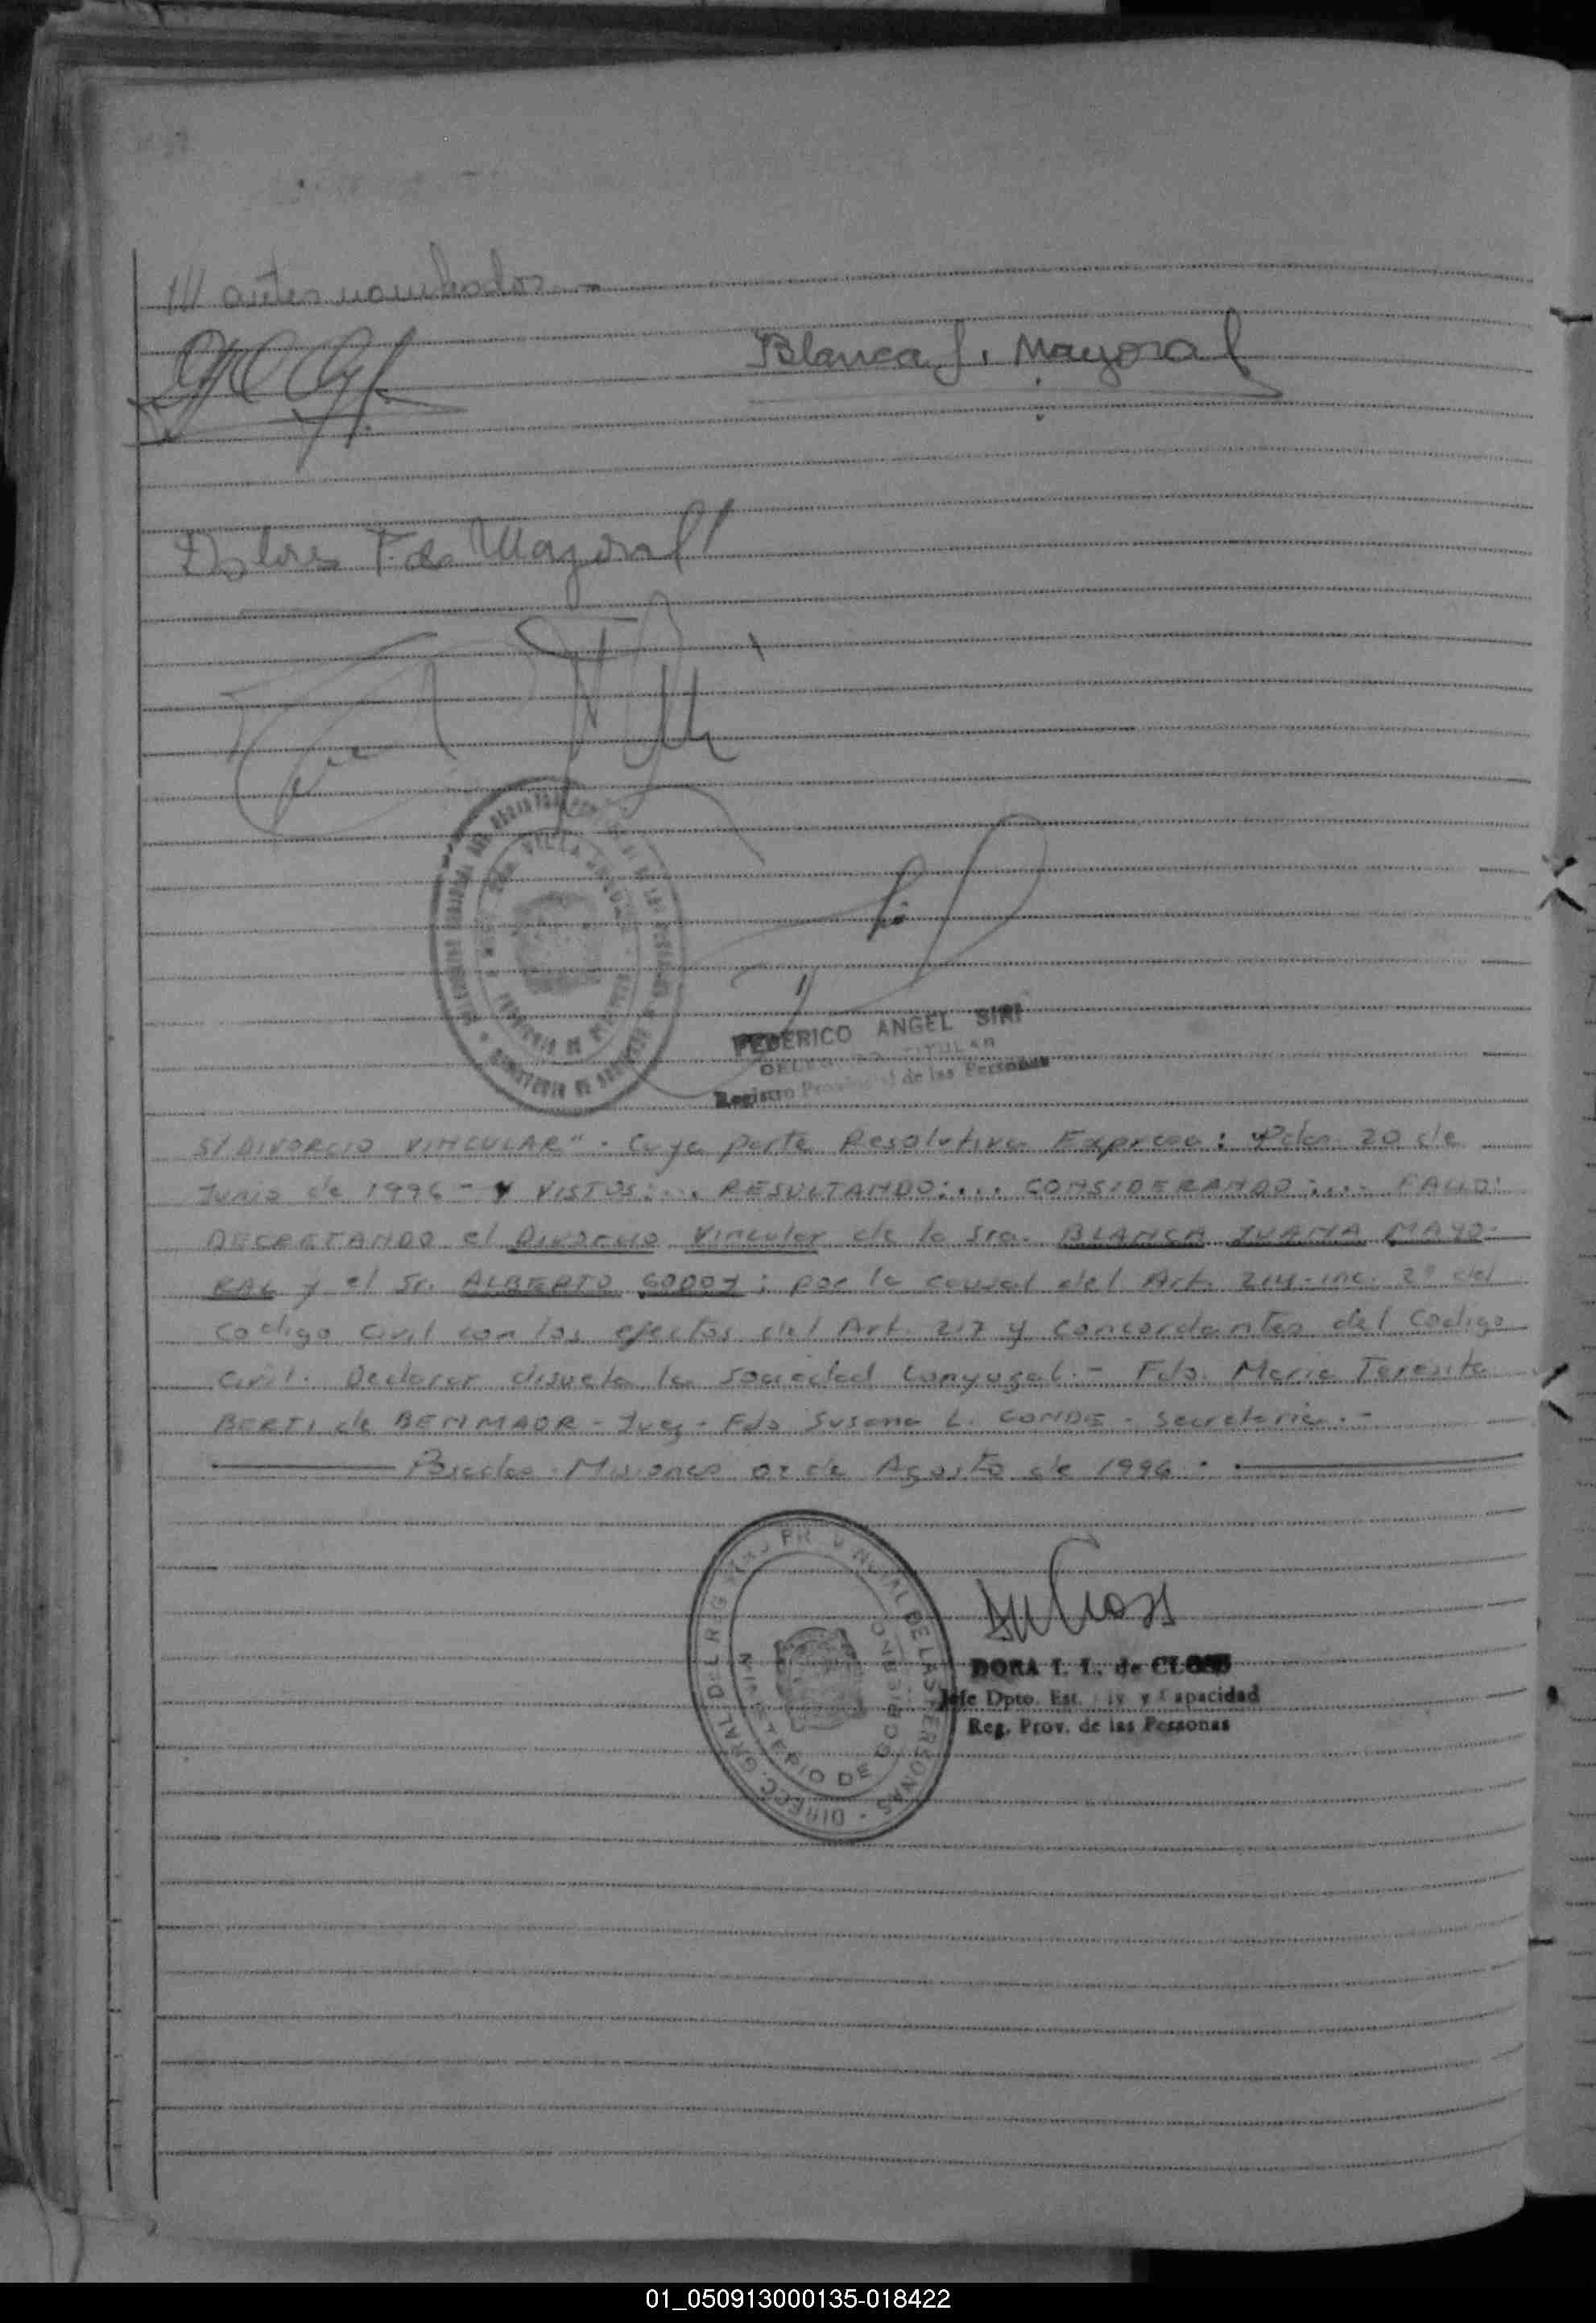 /// antes nombrados.-
Blanca J. Mayoral
Dolores F. de Mayoral
FEDERICO ANGEL SIRI
DELEGADO TITULAR
Registro Provincial de las Personas
S/ DIVORCIO VINCULAR". Cuya parte Resolutiva Expresa: Pdas. 20 de
Junio de 1996 - Y VISTOS:... RESULTANDO:... CONSIDERANDO:... FALLO:
DECRETANDO el Divorcio Vincular de la Sra. BLANCA JUANA MAYO-
RAL y el Sr. ALBERTO GODOY; por la causal del Art. 214-inc. 2º del
Codigo Civil con los efectos del Art. 217 y Concordantes del Codigo
Civil. Declarar disuelta la Sociedad Conyugal.- Fdo. Maria Teresita
BERTI de BENMAOR - Juez - Fdo Susana L. CONDE - Secretaria.-
Posadas - Misiones de Agosto de 1996.
DIRECC. GRAL DEL REGISTRO PROVINCIAL DE LAS PERSONAS
MINISTERIO DE GOBIERNO
DORA I. L. de CLOSS
Jefe Dpto. Est. Civ. y Capacidad
Reg. Prov. de las Personas
01_050913000135-018422